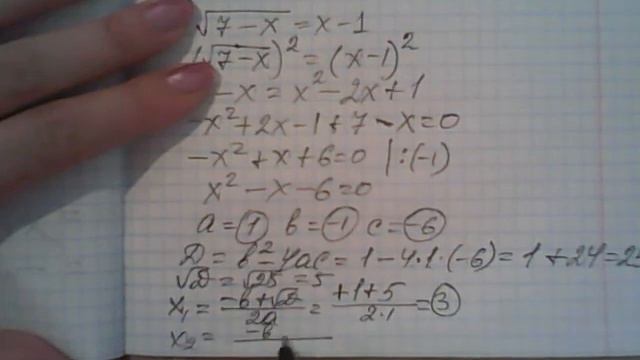 √(7-x) = x-1
(√(7-x))² = (x-1)²
-x = x²-2x+1
-x²+2x-1+7-x=0
-x²+x+6=0 |:(-1)
x²-x-6=0
a=1 b=-1 c=-6
D=b²-4ac=1-4·1·(-6)=1+24=25
√D=√25=5
x₁=(-b+√D)/2a=(+1+5)/2·1=3
x₂=-b